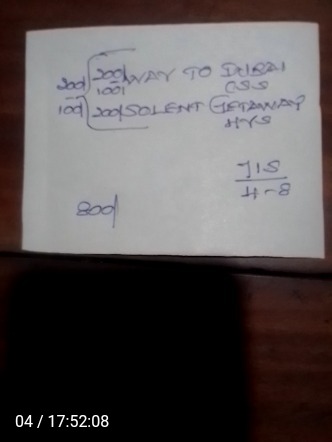 200/ WAY TO DUBAI
200/ 100/ CSS
100/ 200/ SOLENT GETAWAY
HYS
7.15
4-8
800/
04 / 17:52:08